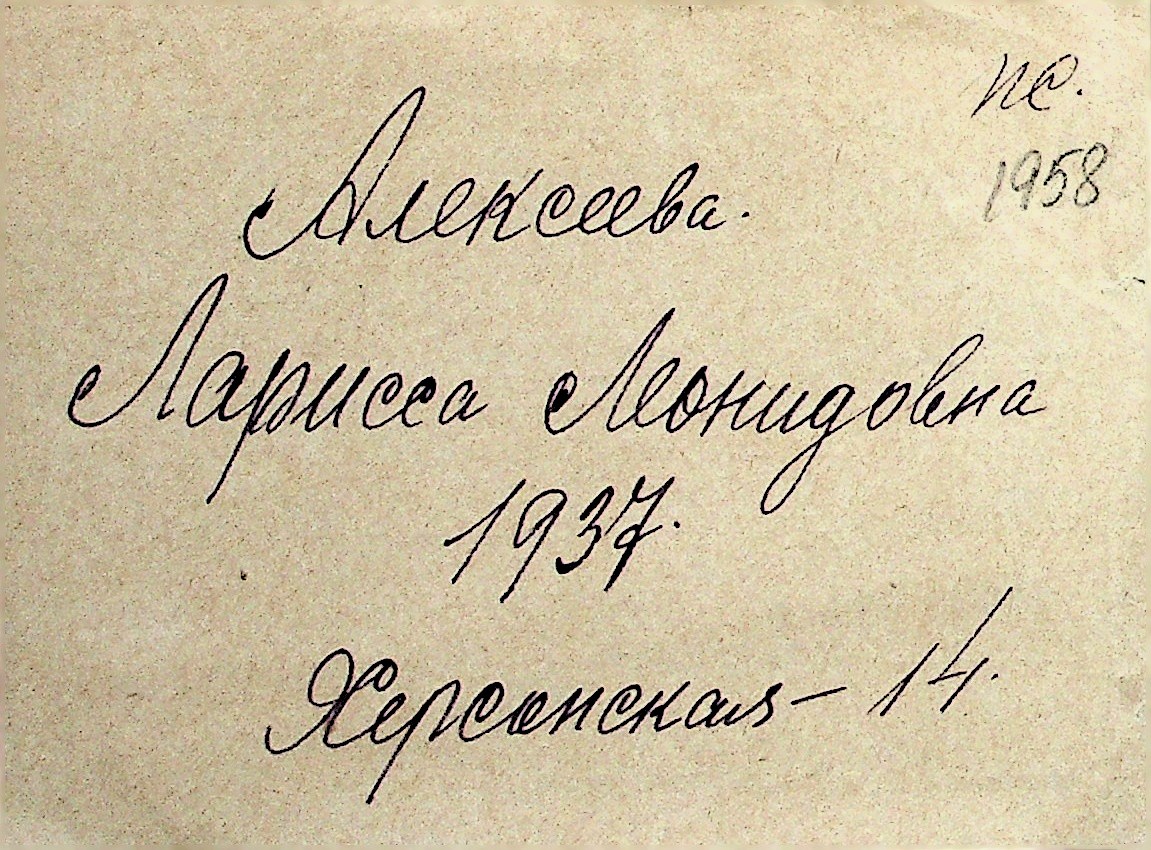 пс.
1958
Алексеева.
Ларисса Леонидовна
1937.
Херсонская – 14.